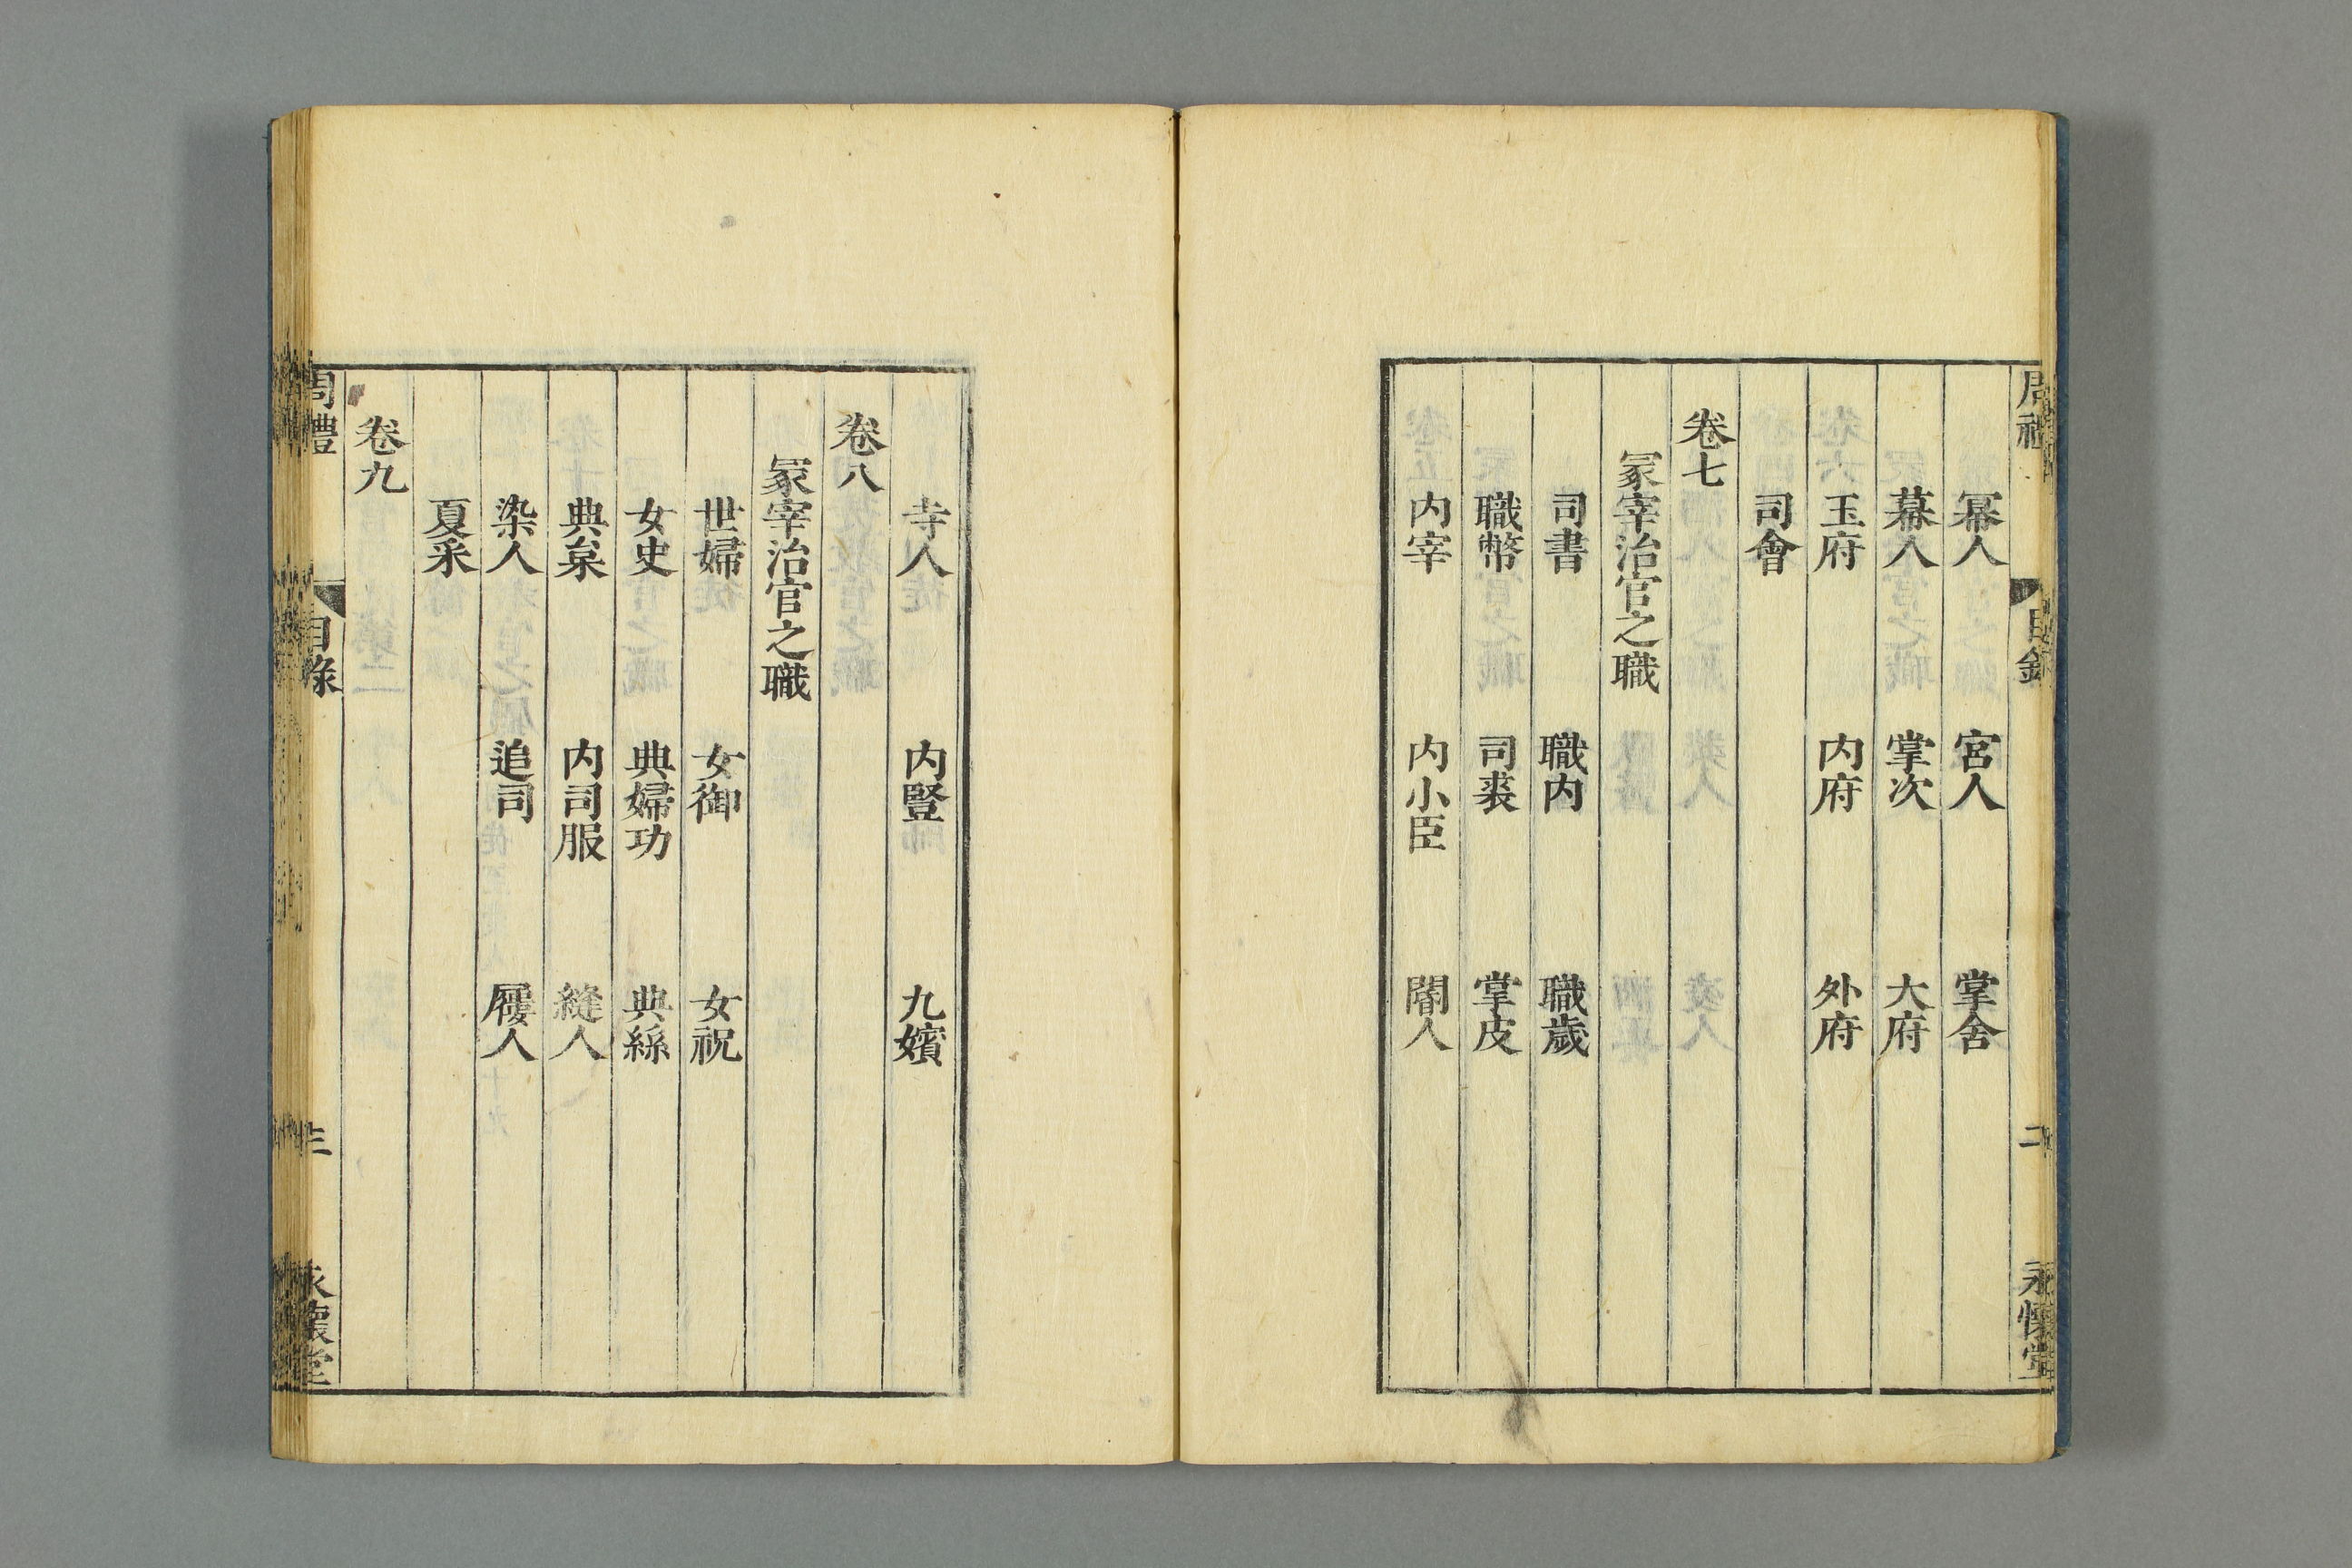 周禮 目錄 二 永懷堂
冪人 宮人 掌舍
幕人 掌次 大府
玉府 内府 外府
司會
卷七
冢宰治官之職
司書 職内 職歲
職幣 司裘 掌皮
内宰 内小臣 閽人
寺人 内豎 九嬪
卷八
冢宰治官之職
世婦 女御 女祝
女史 典婦功 典絲
典枲 内司服 縫人
染人 追司 屨人
夏采
卷九
周禮 目錄 三 永懷堂